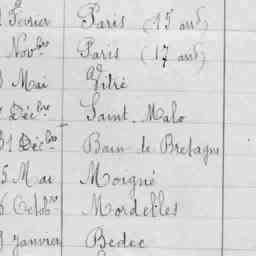 Février Paris (15 ans)
Novbre Paris (17 ans)
Mai Vitré
Décbre Saint-Malo
31 Décbre Bain-de-Bretagne
5 Mai Moigné
6 Octobre Mordelles
Janvier Bedée